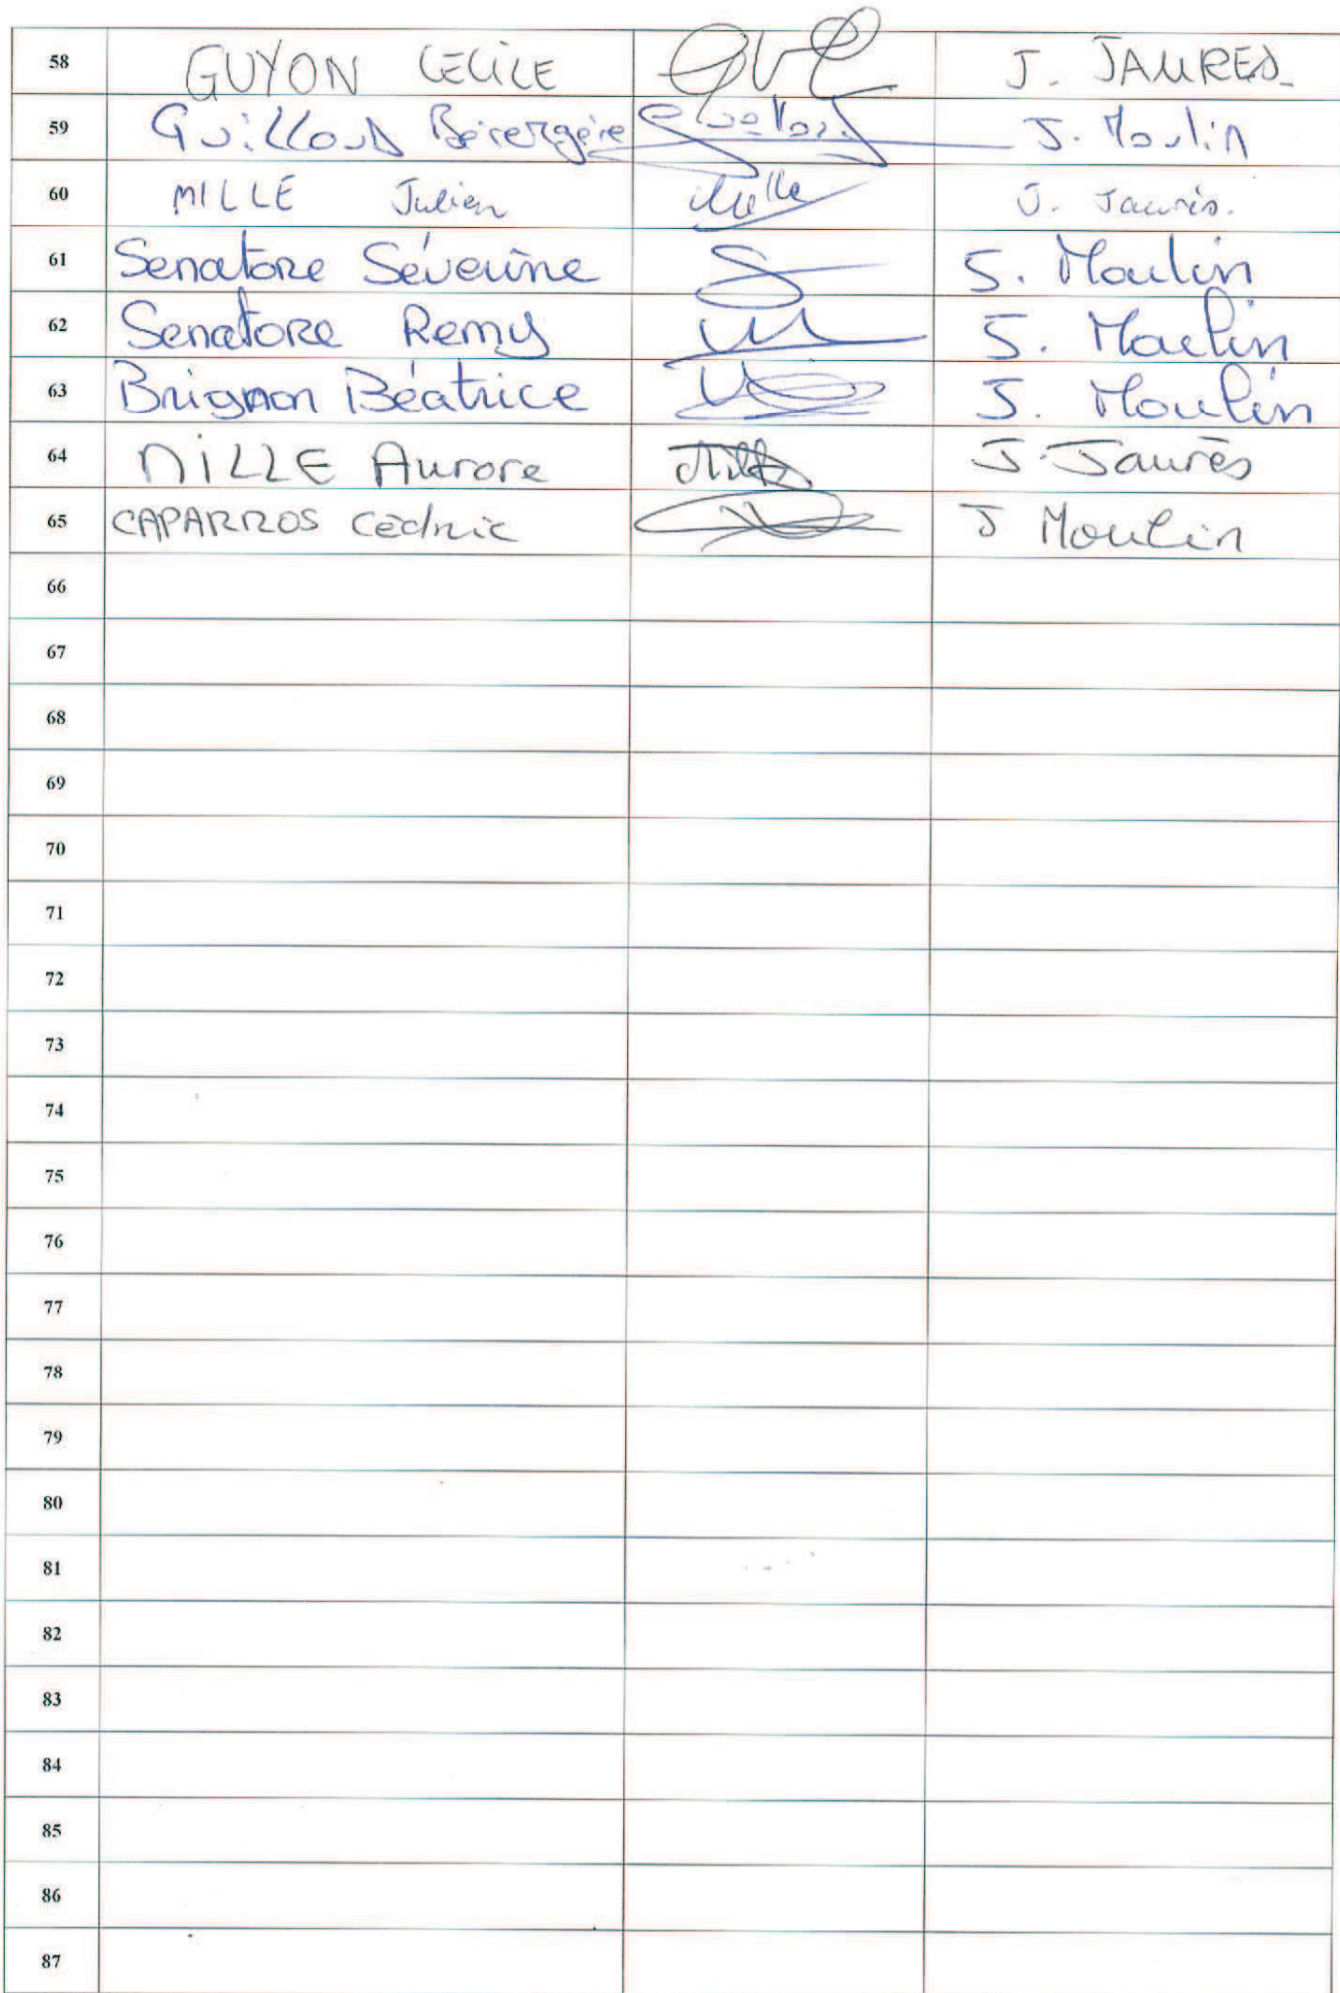 58 GUYON CECILE J. JAURES
59 Guilloud Bérergère J. Moulin
60 MILLE Julien Mille J. Jaurès.
61 Senatore Séverine J. Moulin
62 Senatore Remy J. Moulin
63 Brignon Béatrice J. Moulin
64 MILLE Aurore Mille J. Jaurès
65 CAPARROS Cédric J Moulin
66
67
68
69
70
71
72
73
74
75
76
77
78
79
80
81
82
83
84
85
86
87